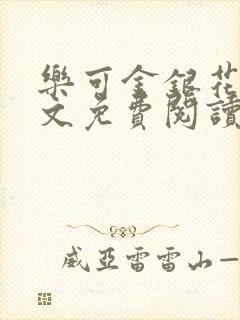 樂可金銀花
文免費閱讀
威亞雷雷山—